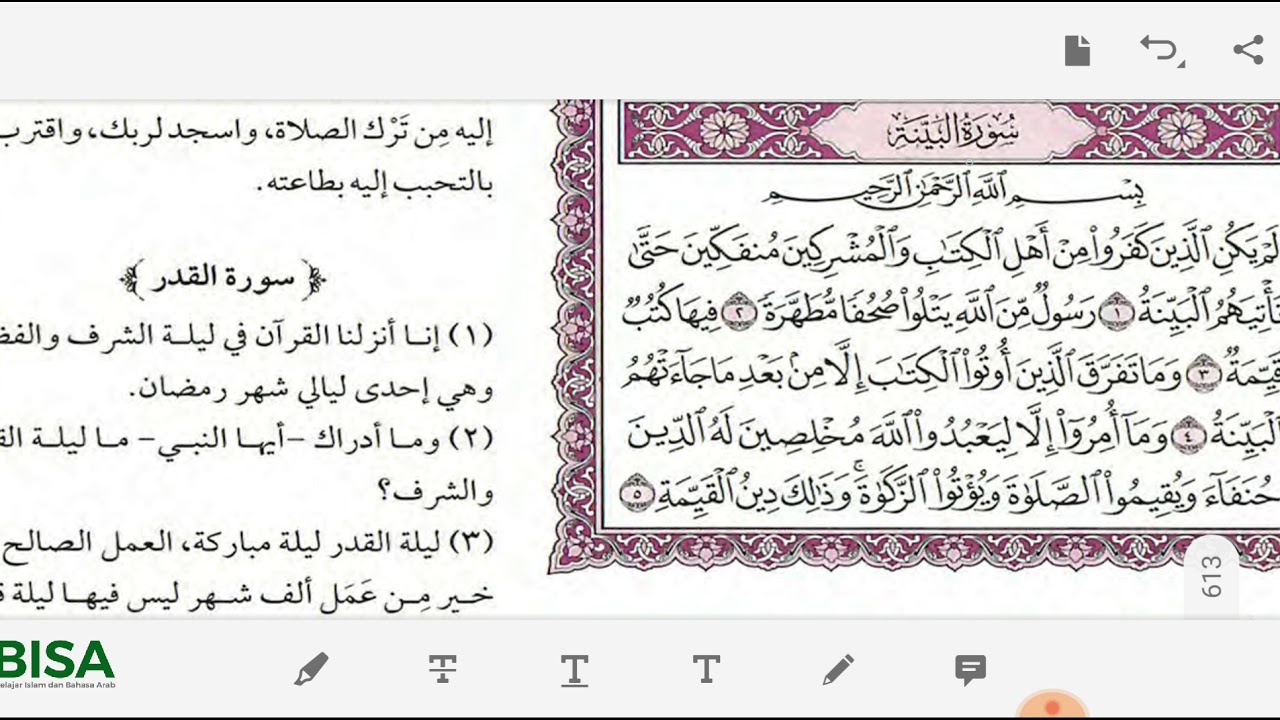 سُورَةُ البَيِّنَةِ
بِسْمِ ٱللَّهِ ٱلرَّحْمَٰنِ ٱلرَّحِيمِ
لَمْ يَكُنِ ٱلَّذِينَ كَفَرُوا۟ مِنْ أَهْلِ ٱلْكِتَٰبِ وَٱلْمُشْرِكِينَ مُنفَكِّينَ حَتَّىٰ
تَأْتِيَهُمُ ٱلْبَيِّنَةُ ١ رَسُولٌ مِّنَ ٱللَّهِ يَتْلُوا۟ صُحُفًا مُّطَهَّرَةً ٢ فِيهَا كُتُبٌ
قَيِّمَةٌ ٣ وَمَا تَفَرَّقَ ٱلَّذِينَ أُوتُوا۟ ٱلْكِتَٰبَ إِلَّا مِنۢ بَعْدِ مَا جَآءَتْهُمُ
ٱلْبَيِّنَةُ ٤ وَمَآ أُمِرُوٓا۟ إِلَّا لِيَعْبُدُوا۟ ٱللَّهَ مُخْلِصِينَ لَهُ ٱلدِّينَ
حُنَفَآءَ وَيُقِيمُوا۟ ٱلصَّلَوٰةَ وَيُؤْتُوا۟ ٱلزَّكَوٰةَ ۚ وَذَٰلِكَ دِينُ ٱلْقَيِّمَةِ ٥
إليه مِن تَرْك الصلاة، واسجد لربك، واقترب
بالتحبب إليه بطاعته.
﴿ سورة القدر ﴾
(١) إنا أنزلنا القرآن في ليلة الشرف و
وهي إحدى ليالي شهر رمضان.
(٢) وما أدراك -أيها النبي- ما ليلة
والشرف؟
(٣) ليلة القدر ليلة مباركة، العمل الصالح
خير مِن عَمَل ألف شهر ليس فيها ليلة
613
BISA
elajar Islam dan Bahasa Arab